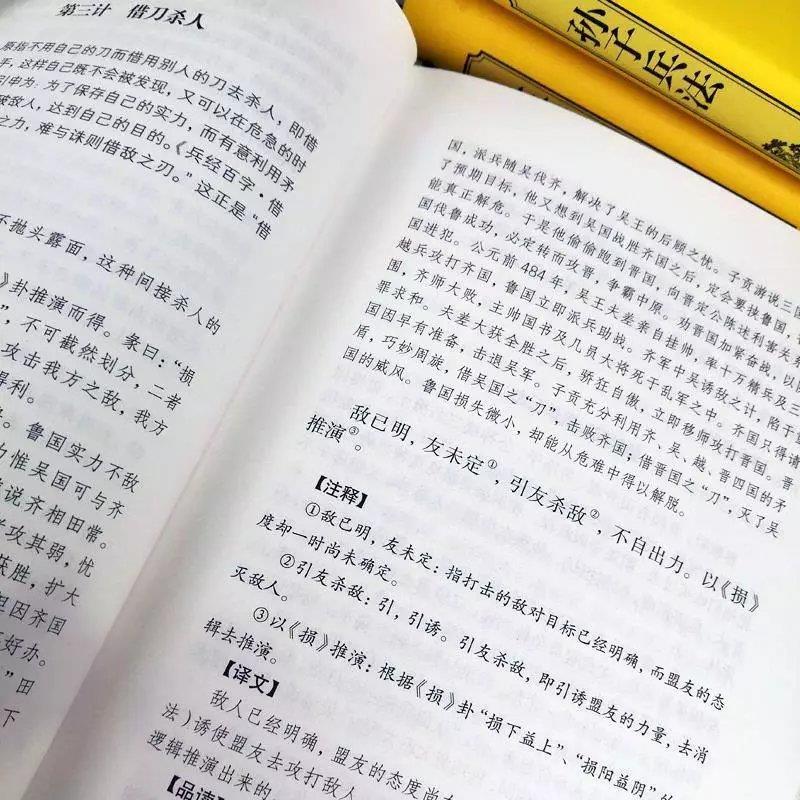 第三计 借刀杀人
原指不用自己的刀而借用别人的刀去杀人,即借
手,这样自己既不会被发现,又可以在危急的时
引申为:为了保存自己的实力,而有意利用矛
敌人,达到自己的目的。《兵经百字·借
之力,难与诛则借敌之刃。”这正是“借
不抛头露面,这种间接杀人的
》卦推演而得。彖曰:“损
”,不可截然划分,二者
攻击我方之敌,我方
得利。
。鲁国实力不敌
为惟吴国可与齐
说齐相田常。
攻其弱,忧
获胜,扩大
但因齐国
好办。
”田
下
国,派兵随吴伐齐,解决了吴王的后顾之忧。子贡游说三国
了预期目标,他又想到吴国战胜齐国之后,定会要挟鲁国,
能真正解危。于是他偷偷跑到晋国,向晋定公陈述利害关系
国伐鲁成功,必定转而攻晋,争霸中原。劝晋国加紧备战,以
国进犯。公元前484年,吴王夫差亲自挂帅,率十万精兵及三
越兵攻打齐国,鲁国立即派兵助战。齐军中吴诱敌之计,陷于
围,齐师大败,主帅国书及几员大将死于乱军之中。齐国只得请
罪求和。夫差大获全胜之后,骄狂自傲,立即移师攻打晋国。晋
国因早有准备,击退吴军。子贡充分利用齐、吴、越、晋四国的矛
盾,巧妙周旋,借吴国之“刀”,击败齐国;借晋国之“刀”,灭了吴
国的威风。鲁国损失微小,却能从危难中得以解脱。
敌已明,友未定①,引友杀敌②,不自出力。以《损》
推演③。
【注释】
①敌已明,友未定:指打击的敌对目标已经明确,而盟友的态
度却一时尚未确定。
②引友杀敌:引,引诱。引友杀敌,即引诱盟友的力量,去消
灭敌人。
③以《损》推演:根据《损》卦“损下益上”、“损阳益阴”的
辑去推演。
【译文】
敌人已经明确,盟友的态度尚
法)诱使盟友去攻打敌人
逻辑推演出来的
【品读】
孙子兵法